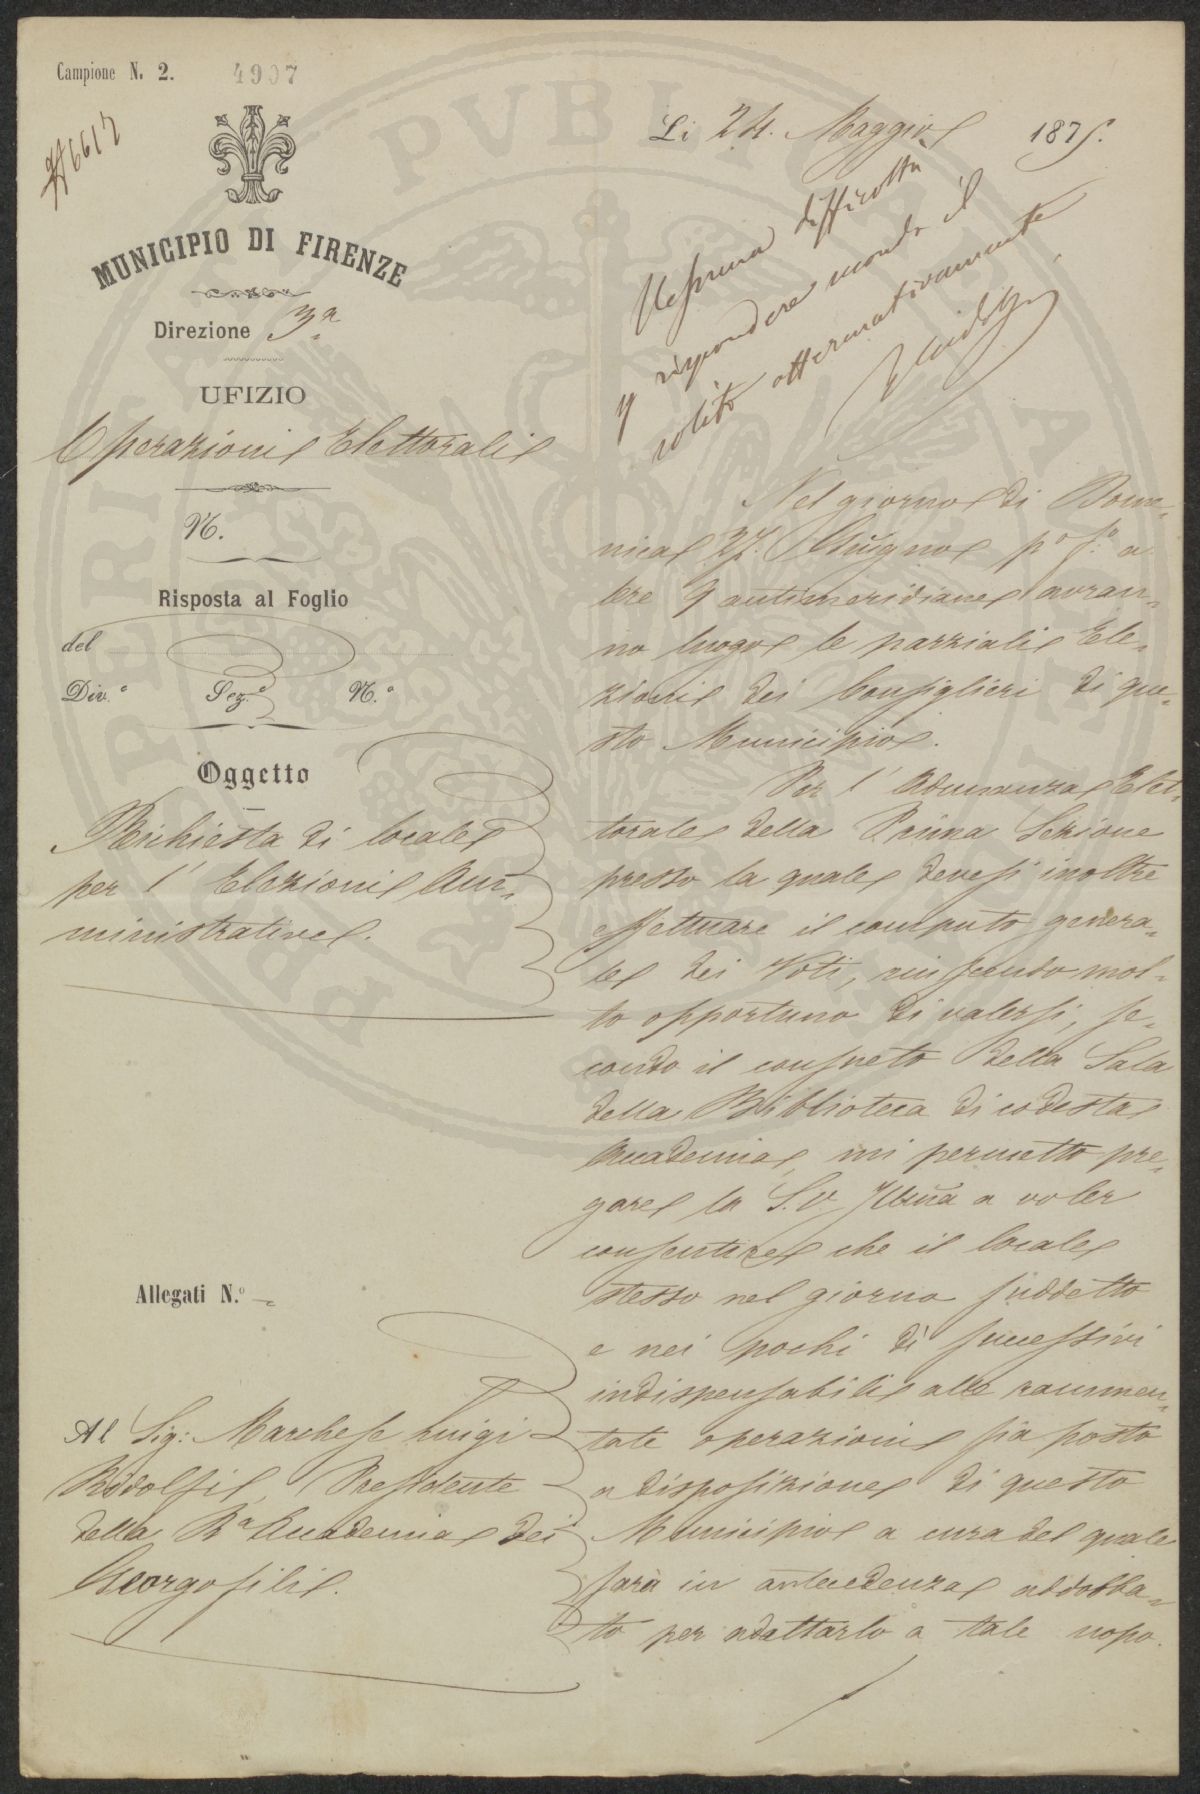 Campione N. 2. 4907
MUNICIPIO DI FIRENZE
Direzione 3ª
UFIZIO
Operazioni Elettorali
N.
Risposta al Foglio
del
Div.e Sez.e N.o
Oggetto
Richiesta di locale
per l' Elezioni Am-
ministrative.
Allegati N.o
Al Sig: Marchese Luigi
Ridolfi, Presidente
della Rª Accademia dei
Georgofili.
Li 24. Maggio 1875.
Nessuna difficoltà
rispondere secondo il
solito affermativamente
Nel giorno di Dome-
nica 27. Giugno po fo a
Ore 9 antimeridiane avran-
no luogo le parziali Ele-
zioni dei Consiglieri di que-
sto Municipio.
Per l' Adunanza Elet-
torale della Prima Sezione
presso la quale devesi inoltre
effettuare il computo genera-
le dei Voti, riuscendo mol-
to opportuno di valersi, se-
condo il consueto della Sala
della Biblioteca di codesta
Accademia, mi permetto pre-
gare la S. V. Illma a voler
consentire che il locale
stesso nel giorno suddetto
e nei pochi dì successivi
indispensabili alle rammen-
tate operazioni sia posto
a disposizione di questo
Municipio a cura del quale
sarà in antecedenza addobba-
to per adattarlo a tale uopo.
PUBLICAE